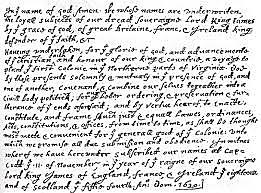 In ye name of god Amen. We whose names are underwriten,
the loyall subjects of our dread soveraigne Lord King James
by ye grace of god, of great Britaine, franc, & Ireland king,
defender of ye faith, &c
Haveing undertaken, for ye glorie of god, and advancemente
of ye christian and honour of our king & countrie, a voyage to
plant ye first colonie in ye Northerne parts of Virginia. doe
by these presents solemnly & mutualy in ye presence of god, and
one of another, covenant, & combine our selves togeather into a
civill body politick; for our better ordering, & preservation & fur=
therance of ye ends aforesaid; and by vertue hearof to enacte,
constitute, and frame shuch just & equall lawes, ordinances,
Acts, constitutions, & offices, from time to time, as shall be thought
most meete & convenient for ye generall good of ye colonie: unto
which we promise all due submission and obedience. In witnes
wherof we have hereunder subscribed our names at Cap=
Codd ye .11. of November, in ye year of ye raigne of our soveraigne
Lord king James of England, france, & Ireland ye eighteenth
and of Scotland ye fiftie fourth. Ano: Dom. 1620.